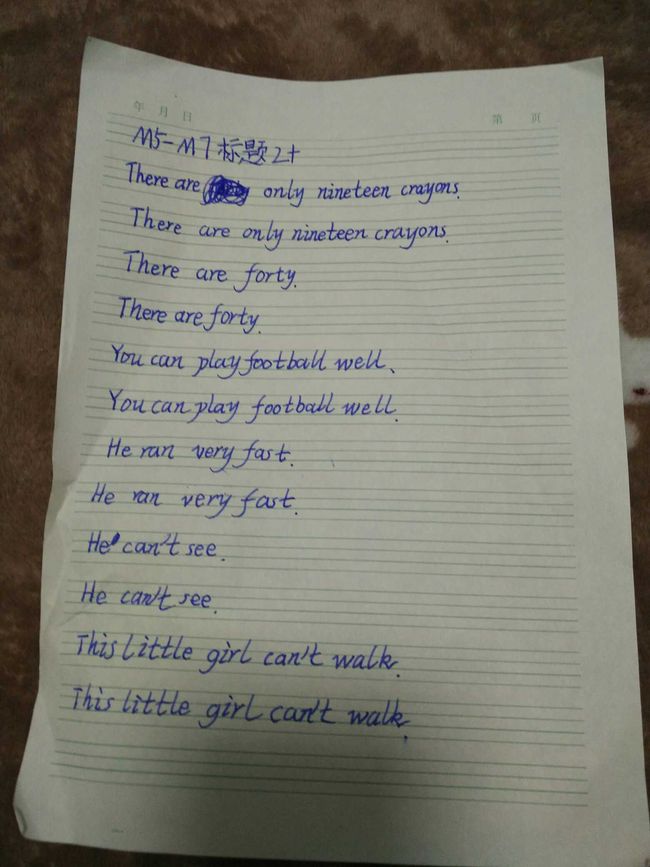 年 月 日 第 页
M5-M7标题2+
There are only nineteen crayons.
There are only nineteen crayons.
There are forty.
There are forty.
You can play football well.
You can play football well.
He ran very fast.
He ran very fast.
He can't see.
He can't see.
This little girl can't walk.
This little girl can't walk.